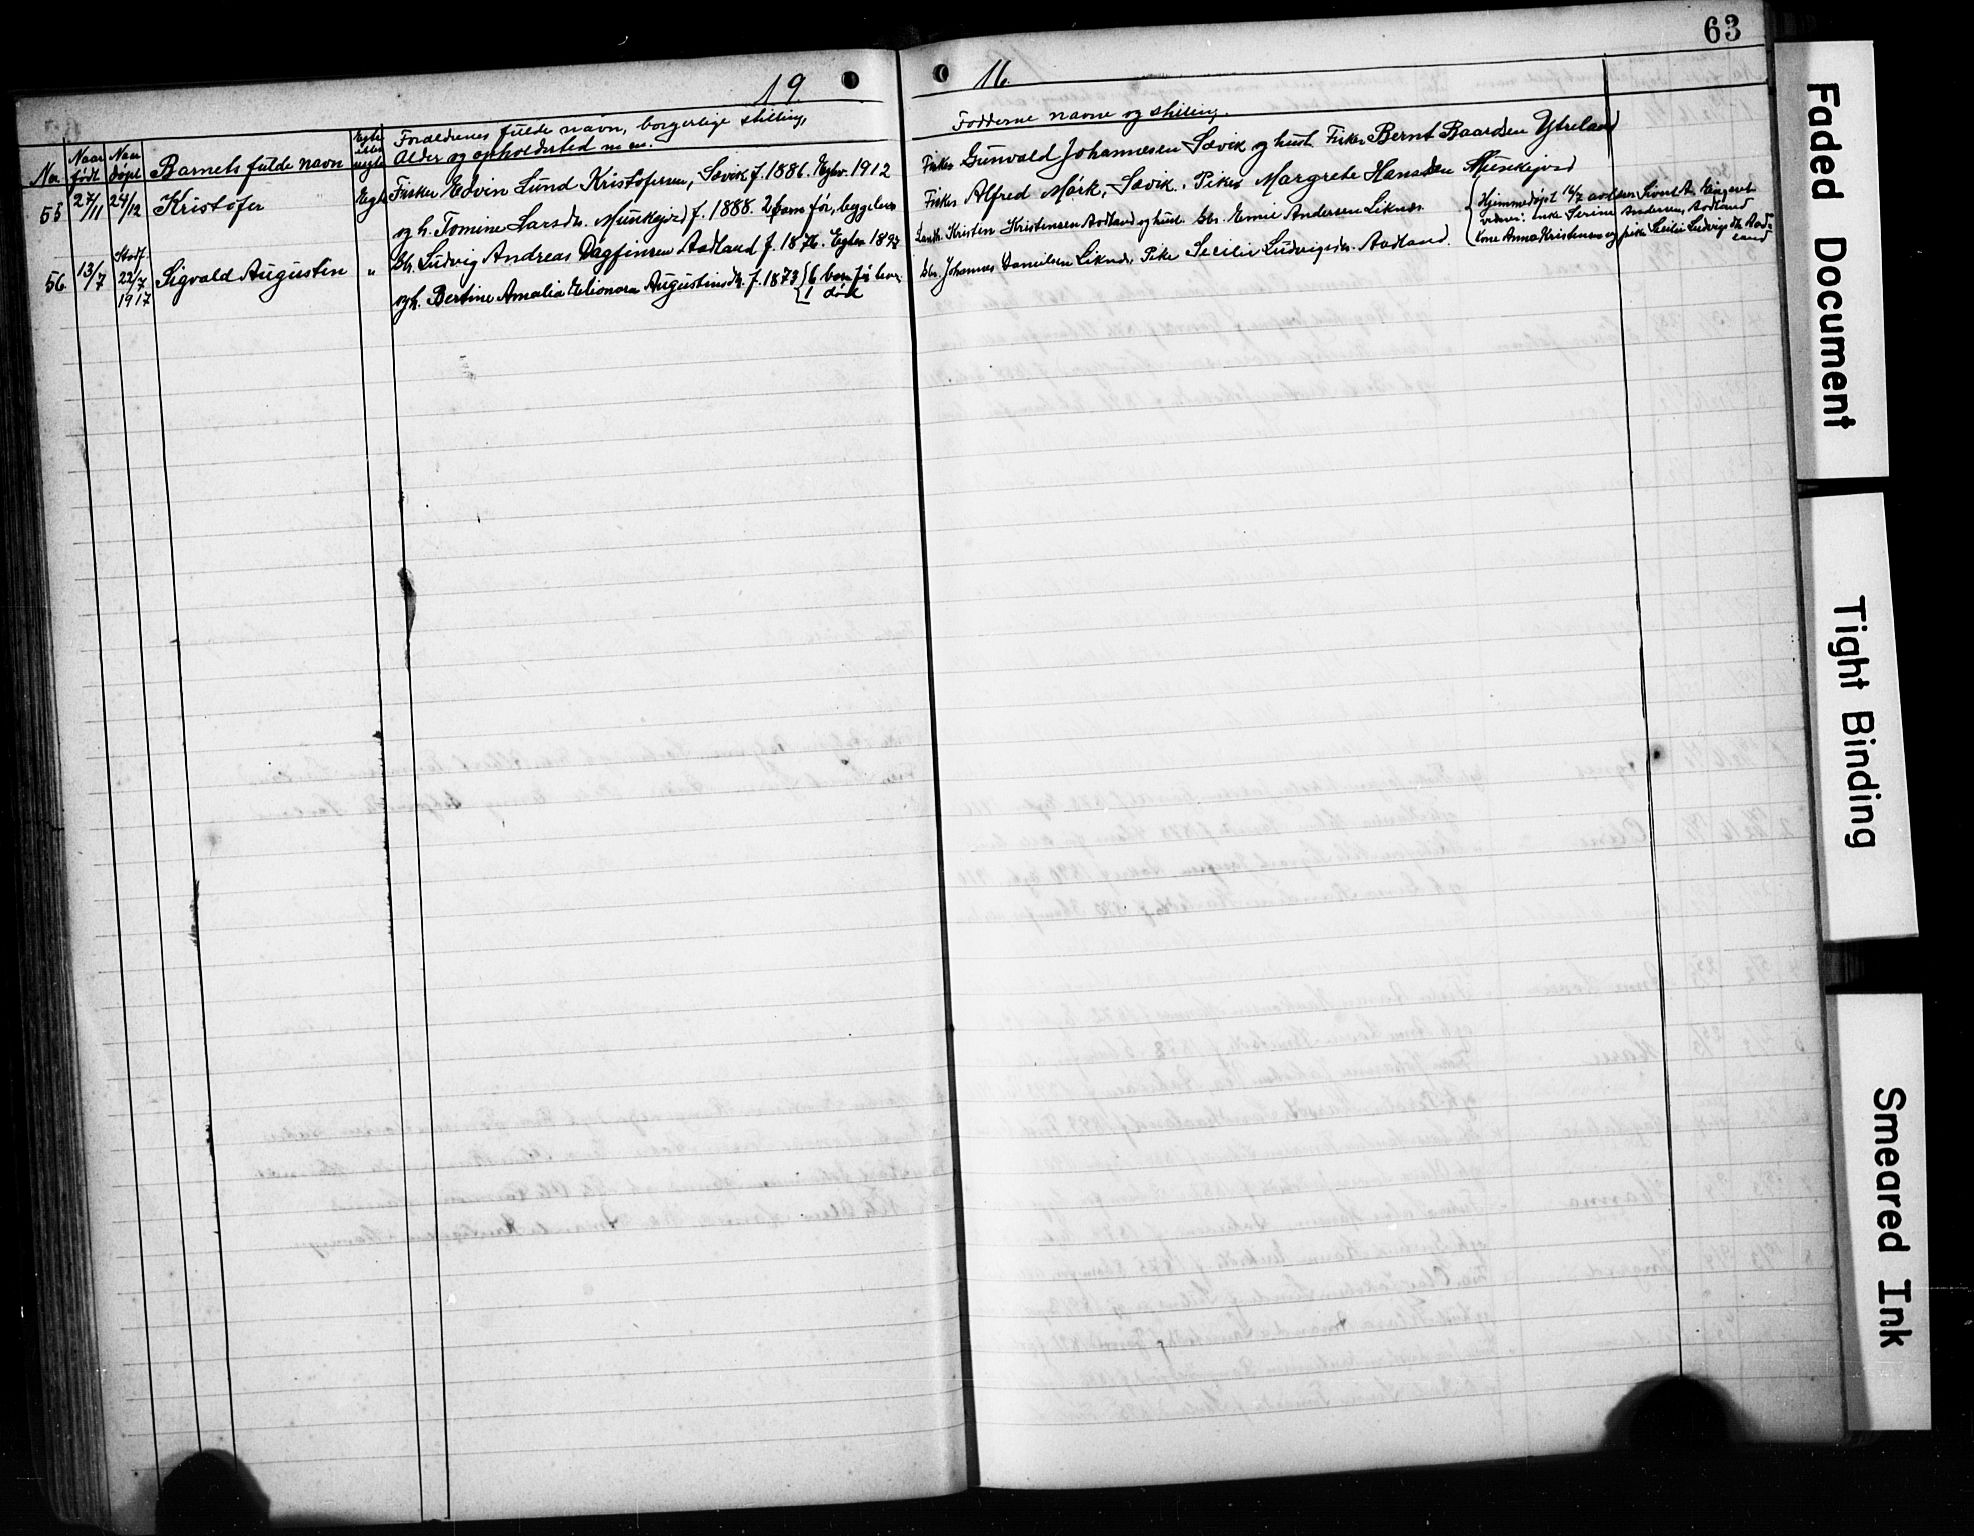 63
19
16.
No.
Naar født
Naar døpt
Barnets fulde navn
Egte eller uegte
Forældrenes fulde navn, borgerlige stilling,
Alder og opholdssted m m.
Faddernes navne og stilling.
55 27/11 24/12 Kristofer Egte Fisker Edvin Lund Kristofersen, Sævik f. 1886. Egtev. 1912
og h. Tomine Larsdtr. Munkejord f. 1888. 2 barn før, begge lever
Fisker Gunvald Johannesen Sævik og hust. Fisker Bernt Baardsen Ytreland
Fisker Alfred Mørk, Sævik. Piker Margrete Hansdtr Munkejord
56. 13/7 Stadf. 22/7 1917 Sigvald Augustin " Gbr. Ludvig Andreas Dagfinsen Aadland f. 1876. Egtev 1897
og h. Bertine Amalia Elionora Augustinsdtr. f. 1873 { 6 barn før lever
1 død
Landh. Kristen Kristensen Aadland og hust. Gbr. Ennie Andersen Liknes
Gbr. Johannes Danielsen Liknes, Pike Secilie Ludvigsdtr. Aadland.
Hjemmedøpt 16/7 av
vidner: enke Serine Andersen, Aadland
Kone Anna Kristensen og pike Secilie Ludvigsdtr. Aad-
land
Faded Document
Tight Binding
Smeared Ink